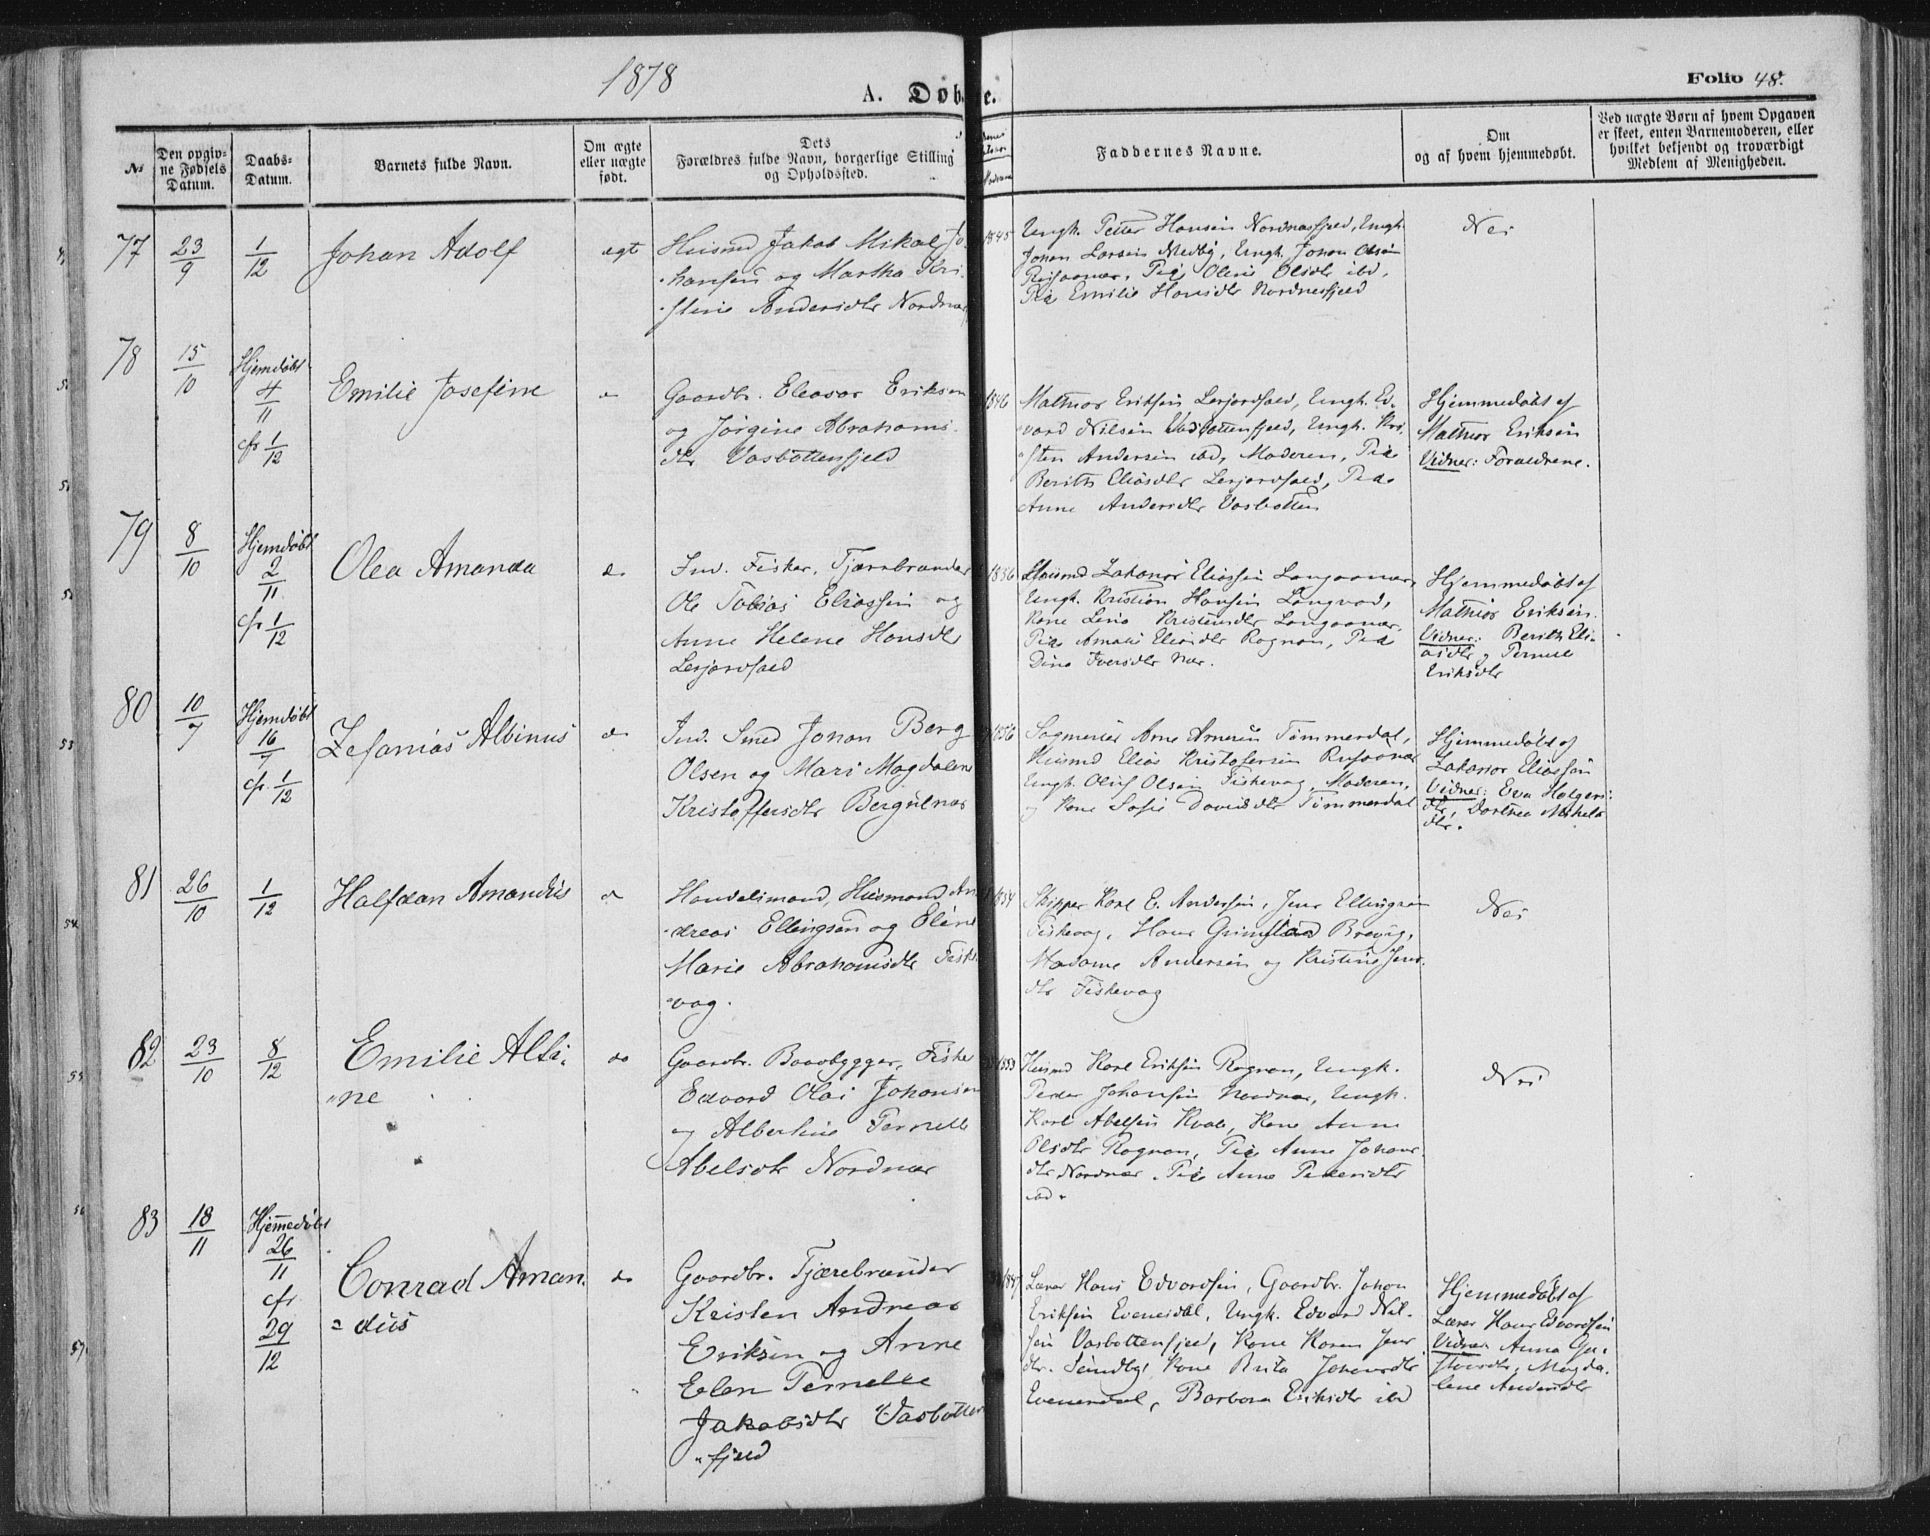 1878
A. Døb e.
Folio 48.
№
Den opgiv-
ne Fødsels
Datum.
Daabs-
Datum.
Barnets fulde Navn.
Om ægte
eller uægte
født.
Dets
Forældres fulde Navn, borgerlige Stilling
og Opholdssted.
Faddernes Navne.
Om
og af hvem hjemmedøbt.
Ved uægte Børn af hvem Opgaven
er skeet, enten Barnemoderen, eller
hvilket bekjendt og troværdigt
Medlem af Menigheden.
77
23/9
1/12
Johan Adolf
egt
Husmd Jakob Mikal Jo-
hansen og Martha Kri-
stine Andersdtr Nordnæs
1845
Ungk. Petter Hansen Nordnæsfjeld, Ungk.
Johan Larsen Medby, Ungk. Johan Olsen
Rusaanæs, Pige Oline Olsdtr ibd,
Pige Emilie Hansdtr Nordnesfjeld
Nei
78
15/10
Hjemdøbt
4/11
cfr 1/12
Emilie Josefine
Gaardbr. Eleasar Eriksen
og Jørgine Abrahams-
dtr Vasbottenfjeld
1846
Mathias Eriksen Lerjordfald, Ungk. Ed-
vard Nilsen Vasbottenfjeld, Ungk. Kri-
sten Andersen ibd, Moderen, Pige
Berith Eliasdtr Lerjordfald, Pige
Anne Andersdtr Vasbotten
Hjemmedøbt af
Mathias Eriksen
Vidner: Forældrene.
79
8/10
Hjemdøbt
2/11
cfr 1/12
Olea Amanda
do
Ind. Fisker, Tjærebrænder
Ole Tobias Eliassen og
Anne Helene Hansdtr
Lerjordfald
1836
Husmd Zakarias Eliassen Langaanæs,
Ungk. Kristian Hansen Langvad,
Kone Lena Kristensdtr Langaanæs,
Pige Amalie Eliasdtr Rognan, Pige
Dina Iversdtr Næs.
Hjemmedøbt af
Mathias Eriksen.
Vidner: Berith Eli-
asdtr og Pernille
Eriksdtr
80
10/7
Hjemdøbt
16/7
cfr. 1/12
Zefanias Albinus
do
Ind. Smed Johan Berg
Olsen og Mari Magdalene
Kristoffersdtr Bergulnæs
1856
Sagmester Arne Arnesen Tømmerdal,
Husmd Elias Kristofersen Rusaanæs
Ungk. Oluf Olsen Fiskevag, Moderen,
og Kone Sofie Davidsdtr Tømmerdal
Hjemmedøbt af
Zakarias Eliassen
Vidner: Eva Holgers-
dtr, Dorthea Mikels-
dtr.
81
26/10
1/12
Halfdan Amandus
do
Handelsmand, Husmand An-
dreas Ellingsen og Eline
Marie Abrahamsdtr Fiske-
vag.
1854
Skipper Karl E. Andersen, Jens Ellingsen
Fiskevag, Hans Grimstad Brevig,
Madame Andersen og Kristine Jens-
dtr Fiskevag
Nei
82
23/10
8/12
Emilie Alfi-
ne
do
Gaardbr. Baadbygger, Fiske
Edvard Olai Johansen
og Albertine Pernelle
Abelsdtr Nordnæs
1853
Husmd Karl Eriksen Rognan, Ungk.
Peder Johansen Nordnæs, Ungk.
Karl Abelsen Kvale, Kone Anne
Olsdtr Rognan, Pige Anne Johans-
dtr Nordnæs. Pige Anne Pedersdtr
ibd.
Nei
83
18/11
Hjemmedøbt
26/11
cfr
29/12
Conrad Aman-
dus
do
Gaardbr. Tjærebrænder
Kristen Andreas
Eriksen og Anne
Elen Pernelle
Jakobsdtr Vasbotten-
fjeld
Lærer Hans Edvardsen, Gaardbr. Johan
Eriksen Evensdal, Ungk. Edvard Nil-
sen Vasbottenfjeld, Kone Karen Jens-
dtr. Sundby, Kone Brita Johansdtr
Evensdal, Barbara Eriksdtr ibd
Hjemmedøbt af
Lærer Hans Edvardsen
Vidner Anna Gu-
stavsdtr, Magda-
lene Andersdtr